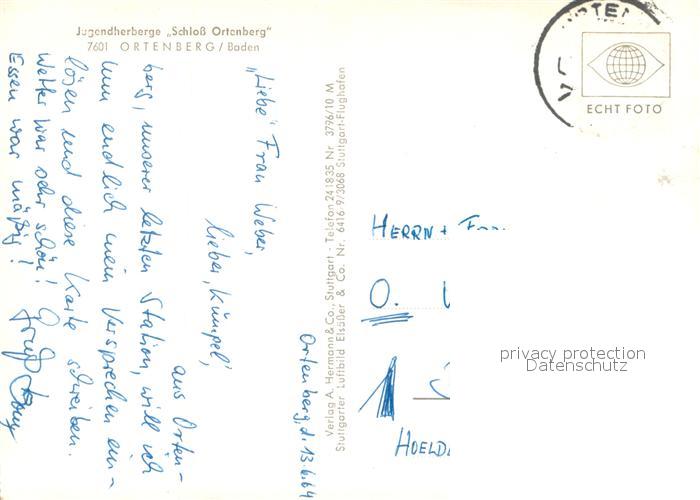 Jugendherberge „Schloß Ortenberg"
7601 ORTENBERG / Baden
Ortenberg, d. 13.6.64
„Liebe" Frau Weber,
lieber „Kümpel",
aus Orten-
berg, unserer letzten Station, will ich
nun endlich mein Versprechen ein-
lösen und diese Karte schreiben.
Wetter war sehr schön!
Essen war mäßig!
Verlag A. Hermann & Co., Stuttgart - Telefon 241835 Nr. 3796/10 M
Stuttgarter Luftbild Elsäßer & Co. Nr. 6416 9/3068 Stuttgart-Flughafen
ECHT FOTO
HERRN +
O.
1
HOELD
privacy protection
Datenschutz